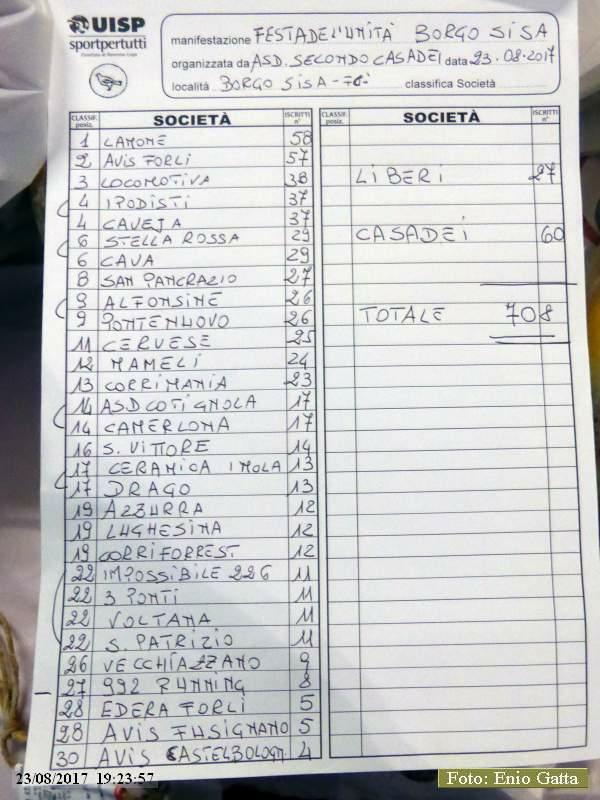 UISP
sportpertutti
manifestazione FESTA DELL'UNITÀ BORGO SISA
organizzata da ASD. SECONDO CASADEI data 23.08.2017
località BORGO SISA - FC classifica Società
CLASSIF. posiz. SOCIETÀ ISCRITTI n°
1 LAMONE 58
2 AVIS FORLI 57
3 LOCOMOTIVA 38
4 IPODISTI 37
4 CAVEJA 37
6 STELLA ROSSA 29
6 CAVA 29
8 SAN PANCRAZIO 27
9 ALFONSINE 26
9 PONTENUOVO 26
11 CERVESE 25
12 MAMELI 24
13 CORRIMANIA 23
14 ASD COTIGNOLA 17
14 CAMERLONA 17
16 S. VITTORE 14
17 CERAMICA IMOLA 13
17 DRAGO 13
19 AZZURRA 12
19 LUGHESINA 12
19 CORRIFORREST 12
22 IMPOSSIBILE 226 11
22 3 PONTI 11
22 VOLTANA 11
22 S. PATRIZIO 11
26 VECCHIAZZANO 9
27 992 RUNNING 8
28 EDERA FORLI 5
28 AVIS FUSIGNANO 5
30 AVIS CASTELBOLOGN 4
CLASSIF. posiz. SOCIETÀ ISCRITTI n°
LIBERI 27
CASADEI 60
TOTALE 708
23/08/2017 19:23:57
Foto: Enio Gatta